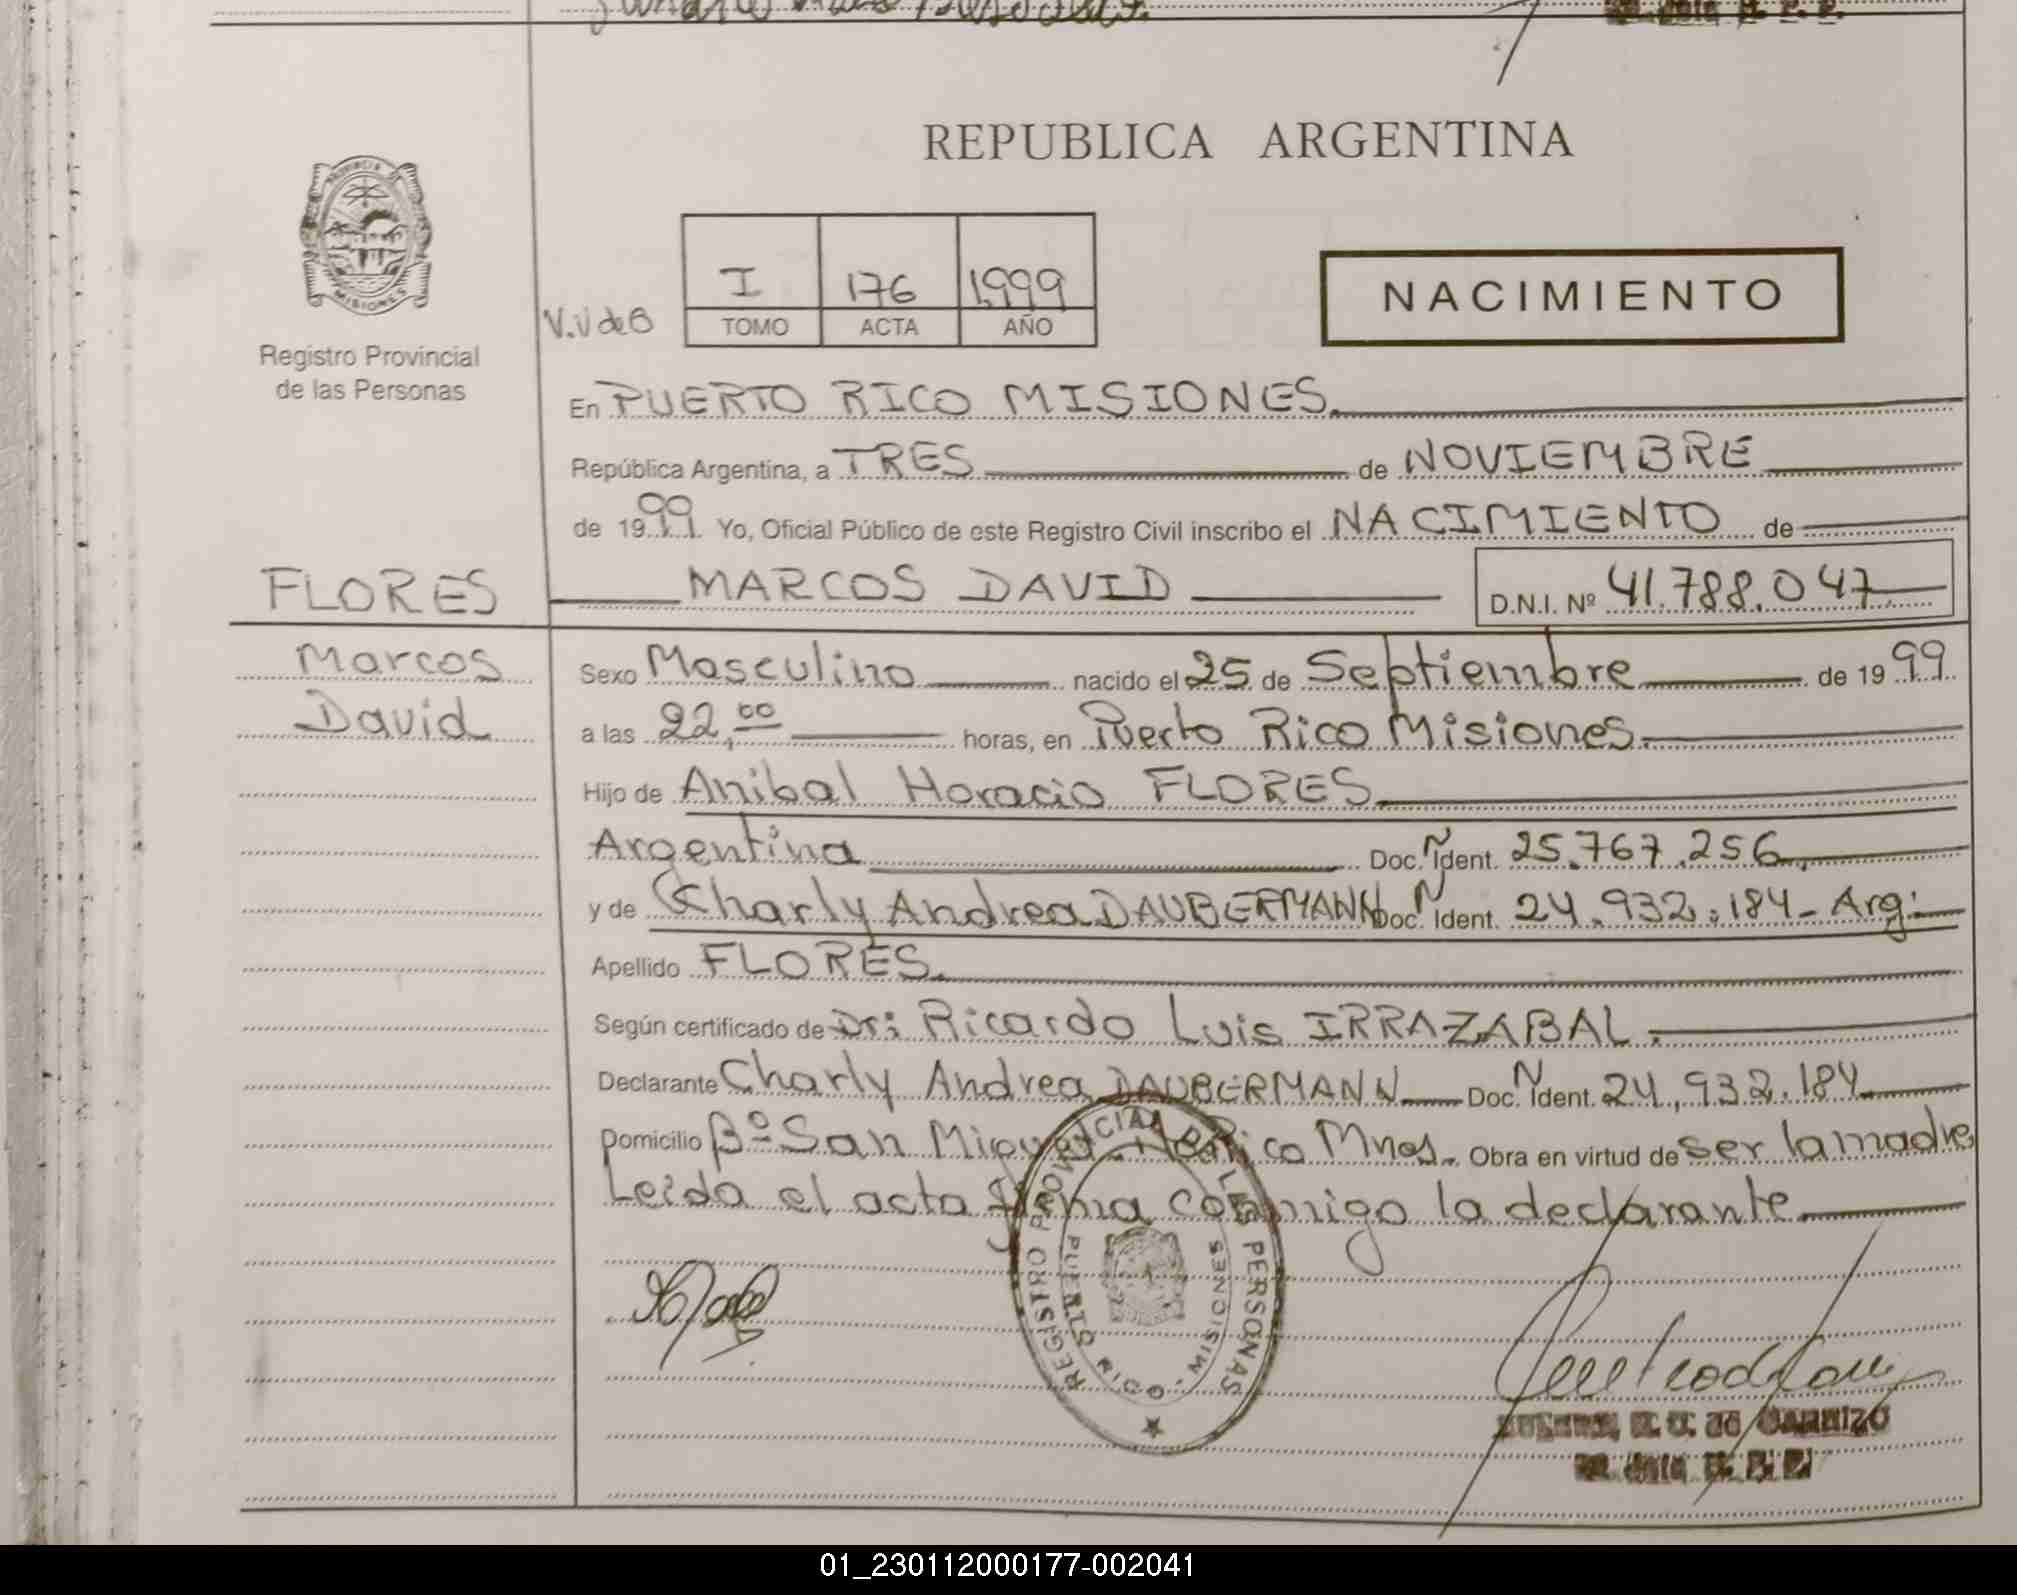 REPUBLICA ARGENTINA
PROVINCIA DE
MISIONES
Registro Provincial
de las Personas
V.V de B
I 176 1999
TOMO ACTA AÑO
NACIMIENTO
En PUERTO RICO MISIONES.
República Argentina, a TRES de NOVIEMBRE
de 1999 Yo, Oficial Público de este Registro Civil inscribo el NACIMIENTO de
FLORES
MARCOS DAVID
D.N.I. Nº 41.788.047
Marcos
David
Sexo Masculino nacido el 25 de Septiembre de 1999
a las 22,00 horas, en Puerto Rico Misiones.
Hijo de Anibal Horacio FLORES
Argentina Doc. N Ident. 25.767.256.
y de Charly Andrea DAUBERMANN Doc. N Ident. 24.932.184- Arg:
Apellido FLORES.
Según certificado de Dr: Ricardo Luis IRRAZABAL.
Declarante Charly Andrea DAUBERMANN Doc. N Ident. 24.932.184
Domicilio Bº San Miguel Rico Mnes. Obra en virtud de ser la madre
Leida el acta firma conmigo la declarante
REGISTRO PROVINCIAL DE LAS PERSONAS
PUERTO RICO - MISIONES
01_230112000177-002041